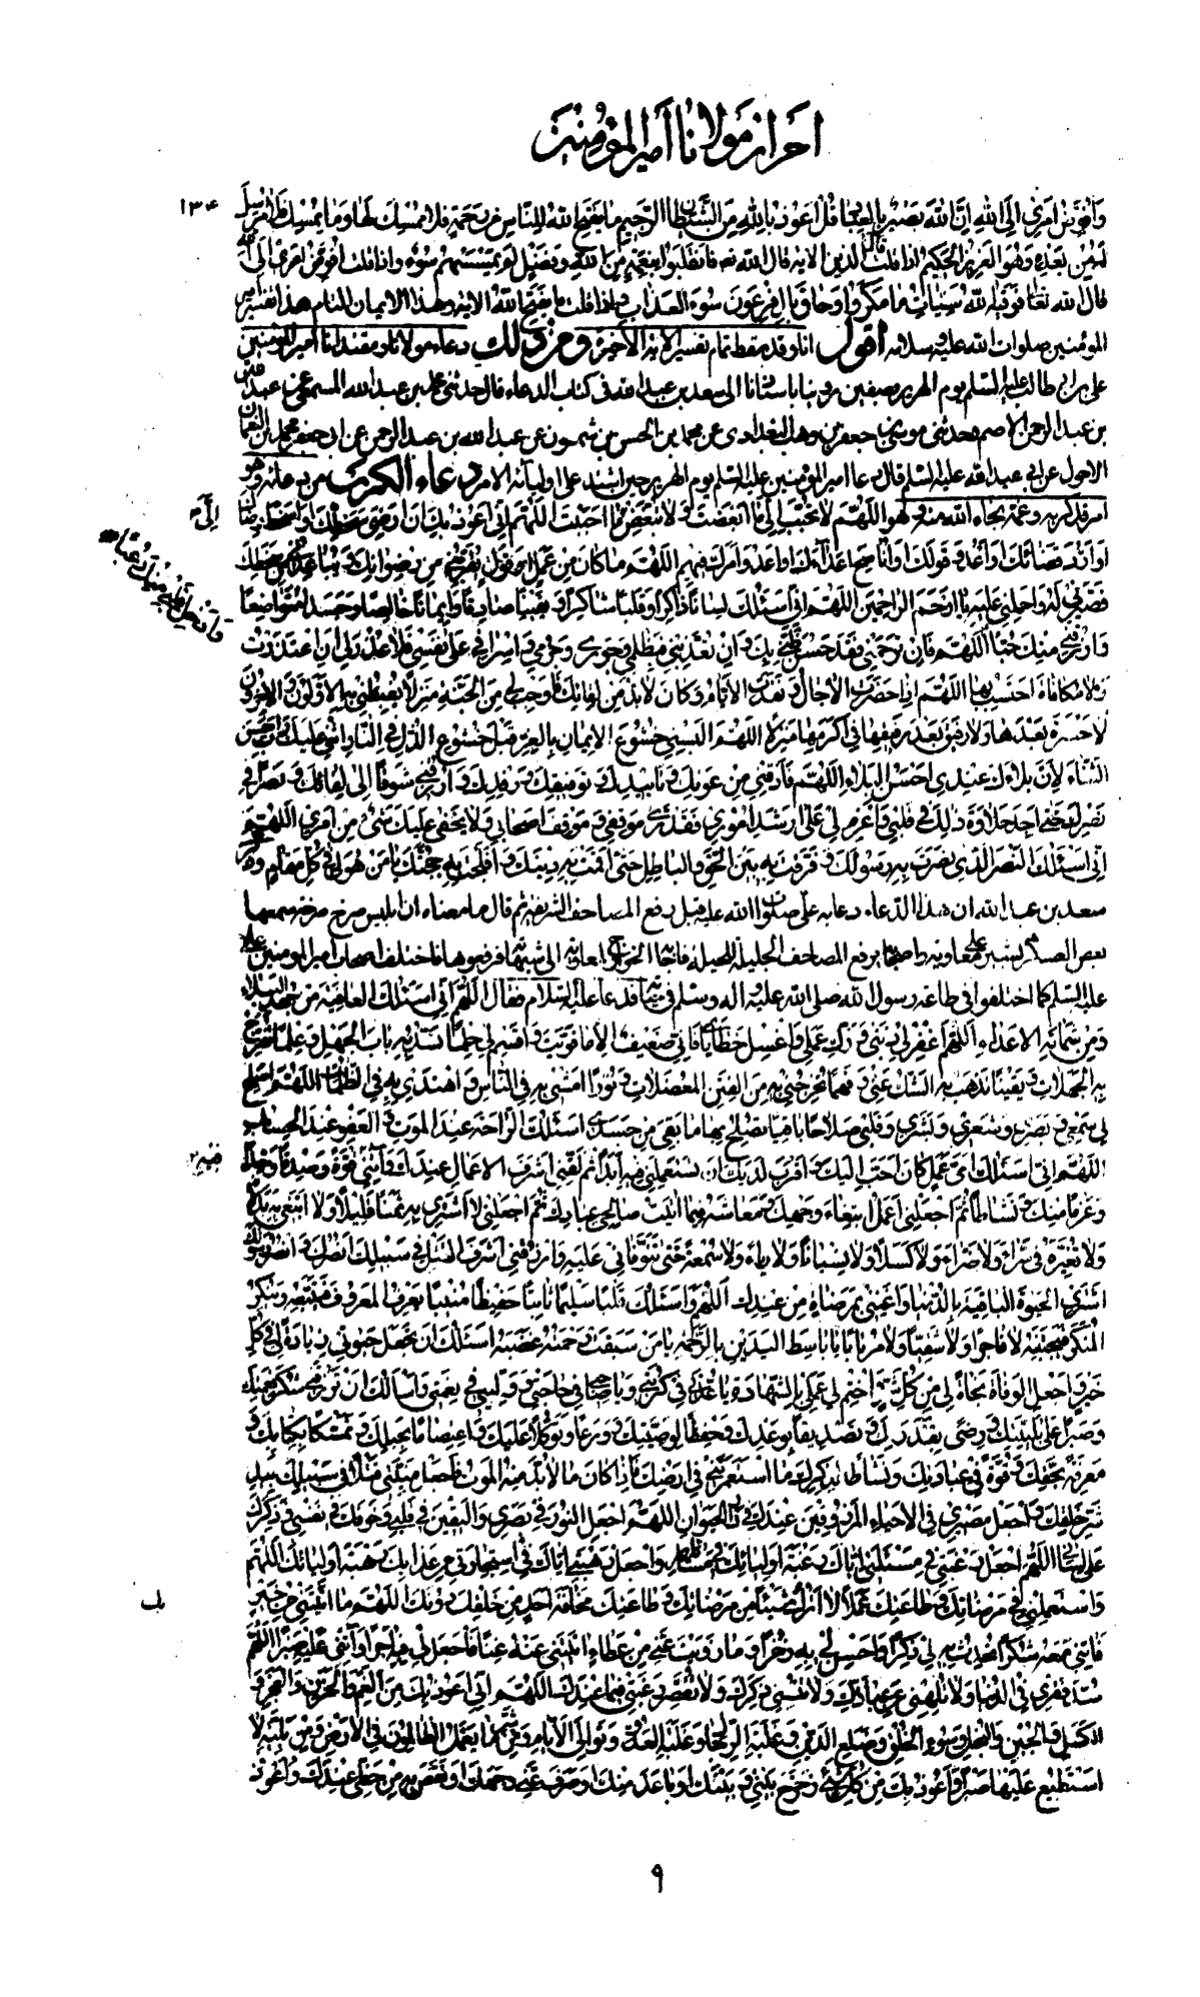 احراز مولانا أمير المؤمنين
١٣٤
وأفوض أمري إلى الله إن الله بصير بالعباد قل أعوذ بالله من الشيطان الرجيم ما يفتح الله للناس من رحمة فلا ممسك لها وما يمسك فلا مرسل
له من بعده وهو العزيز الحكيم الذين الآية قال الله فانقلبوا بنعمة من الله وفضل لم يمسسهم سوء وأفوض أمري إلى الله
قال الله تعالى فوقيه الله سيئات ما مكروا وحاق بآل فرعون سوء العذاب ما يفتح الله الآية وهذا الإيمان التام هذا تفسير أمير
المؤمنين صلوات الله عليه وسلامه أقول أنا وقد سقط تمام تفسير الآية الأخيرة ومن ذلك دعاء مولانا ومقتدانا أمير المؤمنين
علي بن أبي طالب عليه السلم يوم الهرير بصفين إلى سعد بن عبد الله في كتاب الدعاء قال حدثني محمد بن عبد الله المسمعي عن عبد الله
بن عبد الرحمن الأصم وحدثني موسى بن جعفر بن وهب البغدادي عن محمد بن الحسن بن شمون عن عبد الله بن عبد الرحمن عن أبي جعفر محمد بن النعمان
الأحول عن أبي عبد الله عليه السلم قال دعا أمير المؤمنين عليه السلم يوم الهرير حين اشتد على أوليائه الأمر دعاء الكرب من دعا به وهو
في أمر قد كربه وغمه نجاه الله منه وهو اللهم لا تحبب إلي ما أبغضت ولا تبغض إلي ما أحببت اللهم إني أعوذ بك أن أرضى سخطك أو أسخط رضاك
أو أرد قضاءك أو أعدو قولك أو أناصح أعداءك أو أعدو أمرك فيهم اللهم ما كان من عمل أو قول يقربني من رضوانك ويباعدني من سخطك
فصبرني له واحملني عليه يا أرحم الراحمين اللهم إني أسئلك لسانا ذاكرا وقلبا شاكرا ويقينا صادقا وإيمانا خالصا وجسدا متواضعا
وارزقني منك حبا اللهم فإن ترحمني فقد حسن ظني بك وإن تعذبني فبظلمي وجوري وجرمي وإسرافي على نفسي فلا عذر لي إن اعتذرت
ولا مكافاة أحتسب بها اللهم إذا حضرت الآجال ونفدت الأيام وكان لا بد من لقائك فأوجب لي من الجنة منزلا يغبطني به الأولون والآخرون
لا حسرة بعدها ولا رفيق بعد رفيقها في أكرمها منزلا اللهم ألبسني خشوع الإيمان بالعز قبل خشوع الذل في النار أثني عليك رب أحسن
الثناء لأن بلاءك عندي أحسن البلاء اللهم فأذقني من عونك وتأييدك وتوفيقك ورفدك وارزقني شوقا إلى لقائك ونصرا في
نصرك حتى أجد حلاوة ذلك في قلبي واعزم لي على أرشد أموري فقد ترى موقفي وموقف أصحابي ولا يخفى عليك شيء من أمري اللهم
إني أسئلك النصر الذي نصرت به رسولك وفرقت به بين الحق والباطل حتى أقمت به دينك وأفلجت به حجتك يا من هو لي في كل مقام وذكر
سعد بن عبد الله أن هذا الدعاء دعا به علي صلوات الله عليه قبل رفع المصاحف الشريفة ثم قال ما معناه أن إبليس صرخ صرخة سمعها
بعض العسكر يشير على معاوية وأصحابه برفع المصاحف الجليلة للحيلة فأجابه الخوارج لمعاوية إلى شبهاته فرفعوها فاختلف أصحاب أمير المؤمنين علي
عليه السلم كما اختلفوا في طاعة رسول الله صلى الله عليه وآله وسلم في حياته فدعا عليه السلام فقال اللهم إني أسئلك العافية من جهد البلاء
ومن شماتة الأعداء اللهم اغفر لي ذنبي وزك عملي واغسل خطاياي فإني ضعيف إلا ما قويت واقسم لي حلما تسد به باب الجهل وعلما تفرج
به الجهلات ويقينا تذهب به الشك عني وفهما تخرجني به من الفتن المعضلات ونورا أمشي به في الناس وأهتدي به في الظلمات اللهم أصلح
لي سمعي وبصري وشعري وبشري وقلبي صلاحا باقيا تصلح بها ما بقي من جسدي أسئلك الراحة عند الموت والعفو عند الحساب
اللهم إني أسئلك أي عمل كان أحب إليك وأقرب لديك أن تستعملني فيه أبدا ثم لقني أشرف الأعمال عندك وآتني فيه قوة وصدقا وجدا
وعزما منك ونشاطا ثم اجعلني أعمل ابتغاء وجهك ومعاشة فيما آتيت صالحي عبادك ثم اجعلني لا أشتري به ثمنا قليلا ولا أبتغي به بدلا
ولا تغيره في سراء ولا ضراء ولا كسلا ولا نسيانا ولا رياء ولا سمعة حتى تتوفاني عليه وارزقني أشرف القتل في سبيلك أنصرك وأنصر رسولك
أشتري الحيوة الباقية بالدنيا وأغنني بمرضاة من عندك اللهم وأسئلك قلبا سليما ثابتا حفيظا منيبا يعرف المعروف فيتبعه وينكر
المنكر فيجتنبه لا فاجرا ولا شقيا ولا مرتابا يا باسط اليدين بالرحمة يا من سبقت رحمته غضبه أسئلك أن تجعل حيوتي زيادة لي في كل
خير واجعل الوفاة نجاة لي من كل شر واختم لي عملي بالشهادة يا عدتي في كربتي ويا صاحبي في حاجتي ووليي في نعمتي وأسألك أن ترزقني شكر نعمتك
وصبرا على بليتك ورضى بقدرك وتصديقا بوعدك وحفظا لوصيتك وورعا وتوكلا عليك واعتصاما بحبلك وتمسكا بكتابك و
معرفة بحقك وقوة في عبادتك ونشاطا لذكرك ما استعمرتني في أرضك فإذا كان ما لا بد منه الموت فاجعل منيتي قتلا في سبيلك بيد
شر خلقك واجعل مصيري في الأحياء المرزوقين عندك في دار الحيوان اللهم اجعل النور في بصري واليقين في قلبي وخوفك في نفسي وذكرك
على لساني اللهم اجعل رغبتي في مسئلتي إياك رغبة أوليائك في مسائلهم واجعل رهبتي إياك في استجارتي من عذابك رهبة أوليائك اللهم
واستعملني في مرضاتك وطاعتك عملا لا أترك شيئا من مرضاتك وطاعتك مخافة أحد من خلقك دونك اللهم ما آتيتني من خير
فآتني معه شكرا يحدث به لي ذكرا وأحسن لي به ذخرا وما زويت عني من عطاء وأغنيتني عنه غنا فاجعل لي فيه أجرا وآتني عليه صبرا اللهم
سد فقري في الدنيا ولا تلهني عن عبادتك ولا تنسني ذكرك ولا تقصر رغبتي فيما عندك اللهم إني أعوذ بك من الغم والحزن والعجز و
الكسل والجبن والبخل وسوء الخلق وضلع الدين وغلبة الرجال وغلبة العدو وتوالي الأيام ومن شر ما يعمل الظالمون في الأرض ومن بلية لا
أستطيع عليها صبرا وأعوذ بك من كل شيء زحزح بيني وبينك أو باعد منك أو صرف عني وجهك أو نقص به من حظي عندك وأعوذ
إلي
فيه
بك
٩